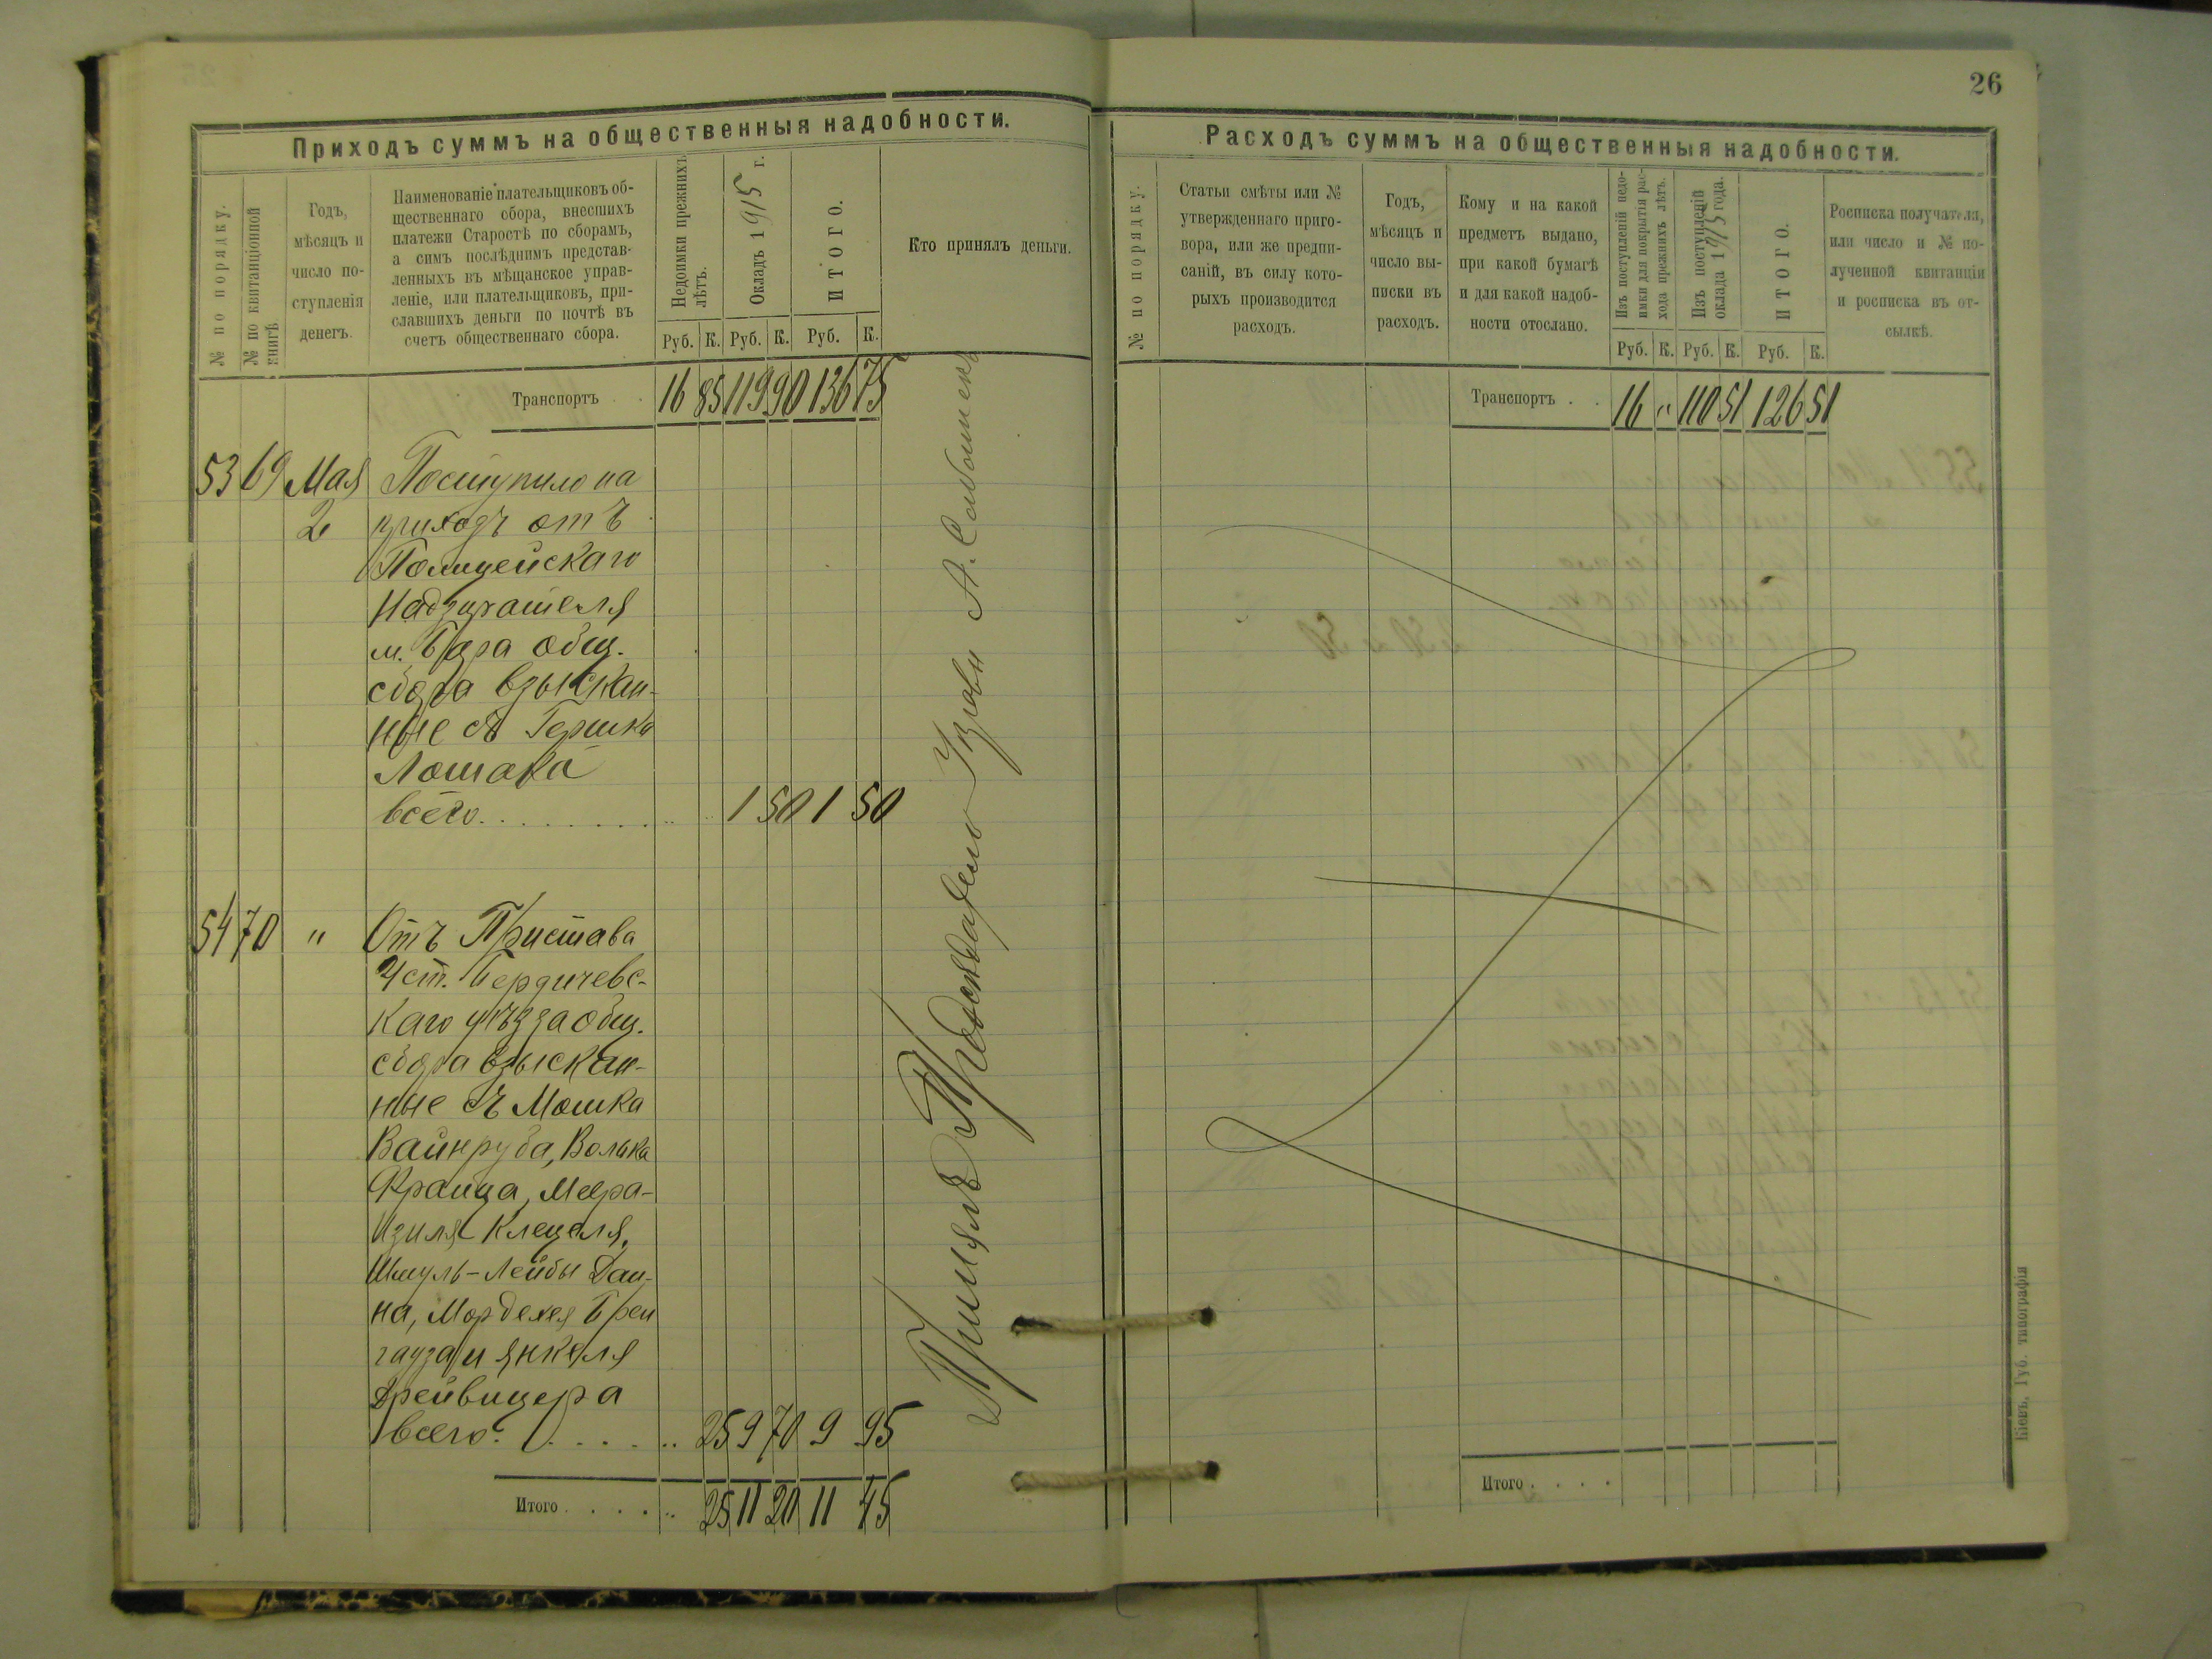 26
Приходъ суммъ на общественныя надобности.
№ по порядку.
№ по квитанціонной книгѣ.
Годъ,
мѣсяцъ и
число по-
ступленія
денегъ.
Наименованіе плательщиковъ об-
щественнаго сбора, внесшихъ
платежи Старостѣ по сборамъ,
а симъ послѣднимъ представ-
ленныхъ въ мѣщанское управ-
леніе, или плательщиковъ, при-
славшихъ деньги по почтѣ въ
счетъ общественнаго сбора.
Недоимки прежнихъ
лѣтъ.
Окладъ 1915 г.
ИТОГО.
Кто принялъ деньги.
Руб. К. Руб. К. Руб. К.
Транспортъ . . 16 85 119 90 136 75
53 69 Мая Поступило на
2 приходъ отъ
Полицейскаго
Надзирателя
м. Бара общ.
сбора взыскан-
ные съ Гершка
Лошака
всего . . . . . . . . 1 50 1 50
54 70 " Отъ Пристава
4 ст. Бердичевс-
каго уѣзда общ.
сбора взыскан-
ные съ Мошка
Вайнруба, Волька
Франца, Меера-
Изиля Клецеля,
Шмуль-Лейбы Дан-
на, Мордехея Брен
гауза и Янкеля
Дрейвицера
всего . . . . . 25 9 70 9 95
Итого . . . . 25 11 20 11 45
Принялъ
А.
Расходъ суммъ на общественныя надобности.
№ по порядку.
Статьи смѣты или №
утвержденнаго приго-
вора, или же предпи-
саній, въ силу кото-
рыхъ производится
расходъ.
Годъ,
мѣсяцъ и
число вы-
писки въ
расходъ.
Кому и на какой
предметъ выдано,
при какой бумагѣ
и для какой надоб-
ности отослано.
Изъ поступленій недо-
имки для покрытія рас-
хода прежнихъ лѣтъ.
Изъ поступленій
оклада 1915 года.
ИТОГО.
Росписка получателя,
или число и № по-
лученной квитанціи
и росписка въ от-
сылкѣ.
Руб. К. Руб. К. Руб. К.
Транспортъ . . 16 " 110 51 126 51
Итого . . . .
Кіевъ. Губ. типографія